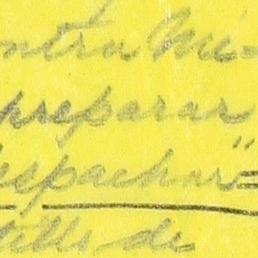 ntra Mi-
preparar
espachar"=
tills de